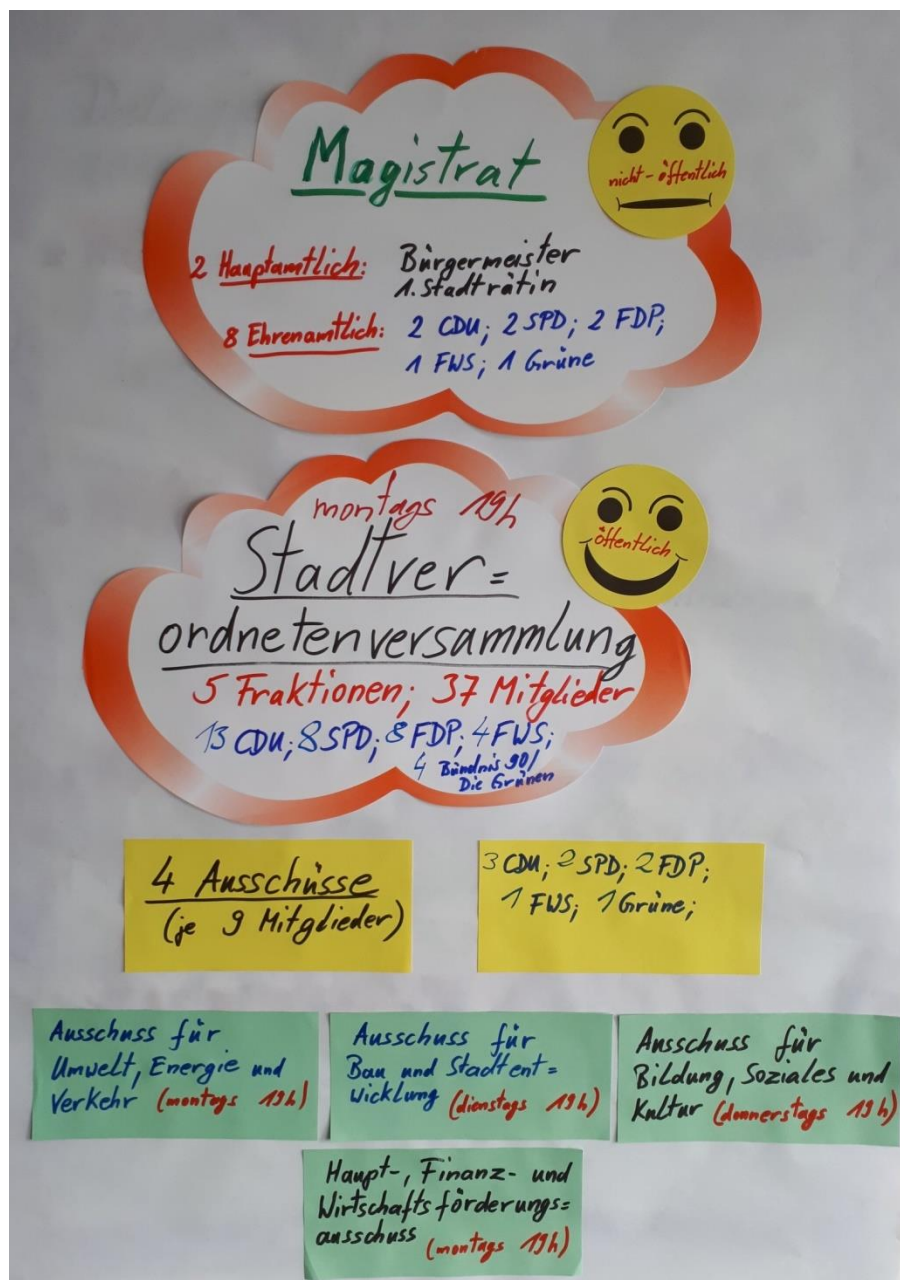 Magistrat
nicht-öffentlich
2 Hauptamtlich: Bürgermeister
1. Stadträtin
8 Ehrenamtlich: 2 CDU; 2 SPD; 2 FDP;
1 FWS; 1 Grüne
montags 19h
öffentlich
Stadtver=
ordnetenversammlung
5 Fraktionen; 37 Mitglieder
13 CDU; 8 SPD; 8 FDP; 4 FWS;
4 Bündnis 90/
Die Grünen
4 Ausschüsse
(je 9 Mitglieder)
3 CDU; 2 SPD; 2 FDP;
1 FWS; 1 Grüne;
Ausschuss für
Umwelt, Energie und
Verkehr (montags 19h)
Ausschuss für
Bau und Stadtent=
wicklung (dienstags 19h)
Ausschuss für
Bildung, Soziales und
Kultur (donnerstags 19h)
Haupt-, Finanz- und
Wirtschaftsförderungs=
ausschuss (montags 19h)